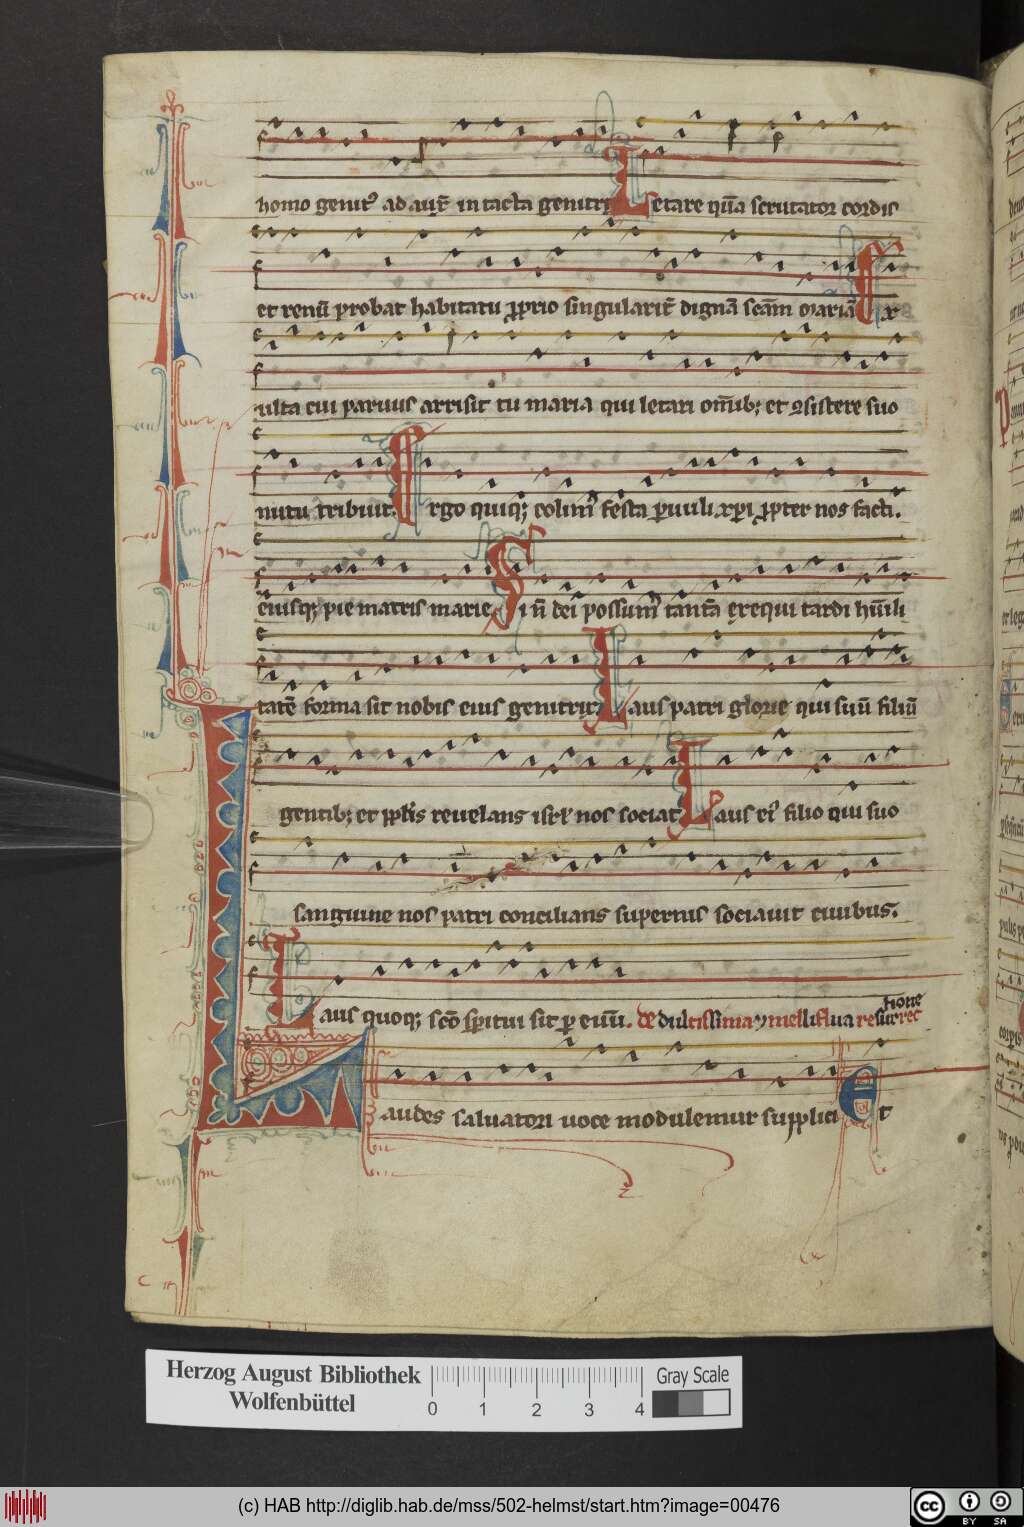 homo genit᷒ ad aur̄ intacta genitri Letare qua̅ scrutator cordis
et renu̅ probat habitatu p̱prio singularit̄ digna̅ sc̄am maria̅ Ex
ulta cui paruus arrisit tu maria qui letari om̅ib; et ꝯsistere suo
nutu tribuit. Ergo quiq; colim᷒ festa paruuli xpi p̱pter nos facti.
eiusq; pie matris marie Si n̄ dei possum᷒ tanta̅ exequi tardi hu̅ili
tate̅ forma sit nobis eius genitrix Laus patri glorie qui suu̅ filiu̅
gentib; et pp̱lis reuelans isrl' nos sociat Laus ei᷒ filio qui suo
sanguine nos patri concilians supernis sociauit ciuibus.
Laus quoq; sc̄o spiritui sit per euu̅. de dulcissima ⁊ melliflua resurrec
tione
Laudes saluatori uoce modulemur supplici Et
Herzog August Bibliothek
Wolfenbüttel
0 1 2 3 4
Gray Scale
(c) HAB http://diglib.hab.de/mss/502-helmst/start.htm?image=00476
cc BY SA